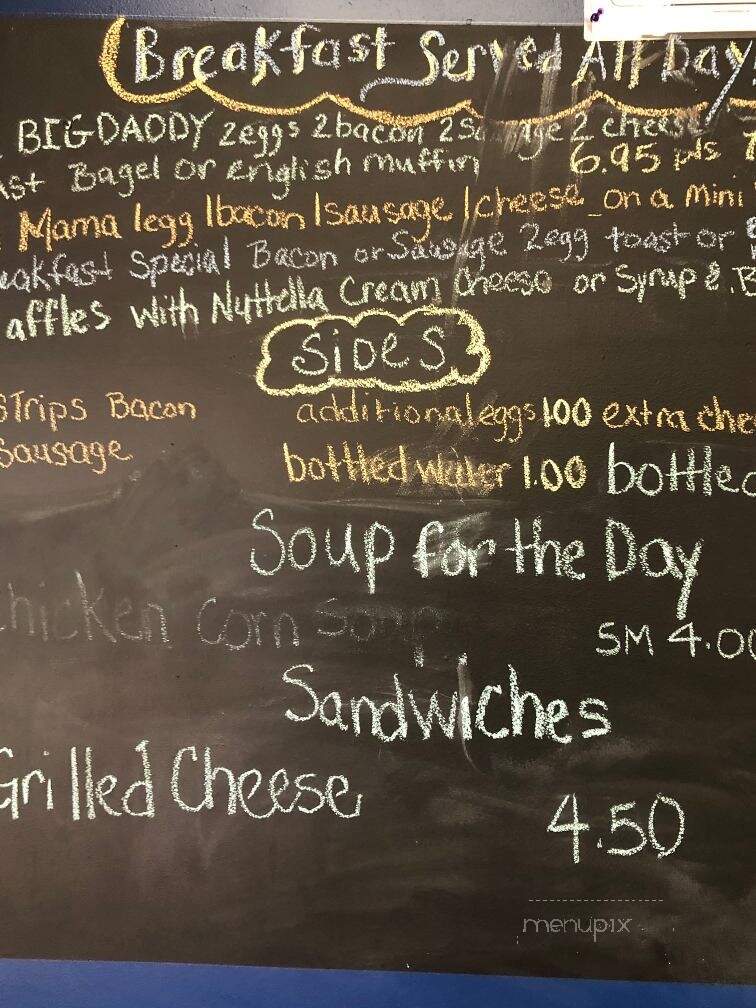 Breakfast Served All Day!
BIGDADDY 2eggs 2bacon 2Sausage 2 cheese
ast Bagel or english muffin 6.95 pls T
Mama 1egg 1bacon 1sausage 1cheese on a mini
eakfast Special Bacon or Sausage 2egg toast or
affles with Nuttella Cream Cheese or Syrup & B
SiDeS
STrips Bacon additionaleggs 100 extra chee
Sausage bottled water 1.00 bottled
Soup for the Day
chicken corn soup SM 4.00
Sandwiches
Grilled Cheese
4.50
menupix